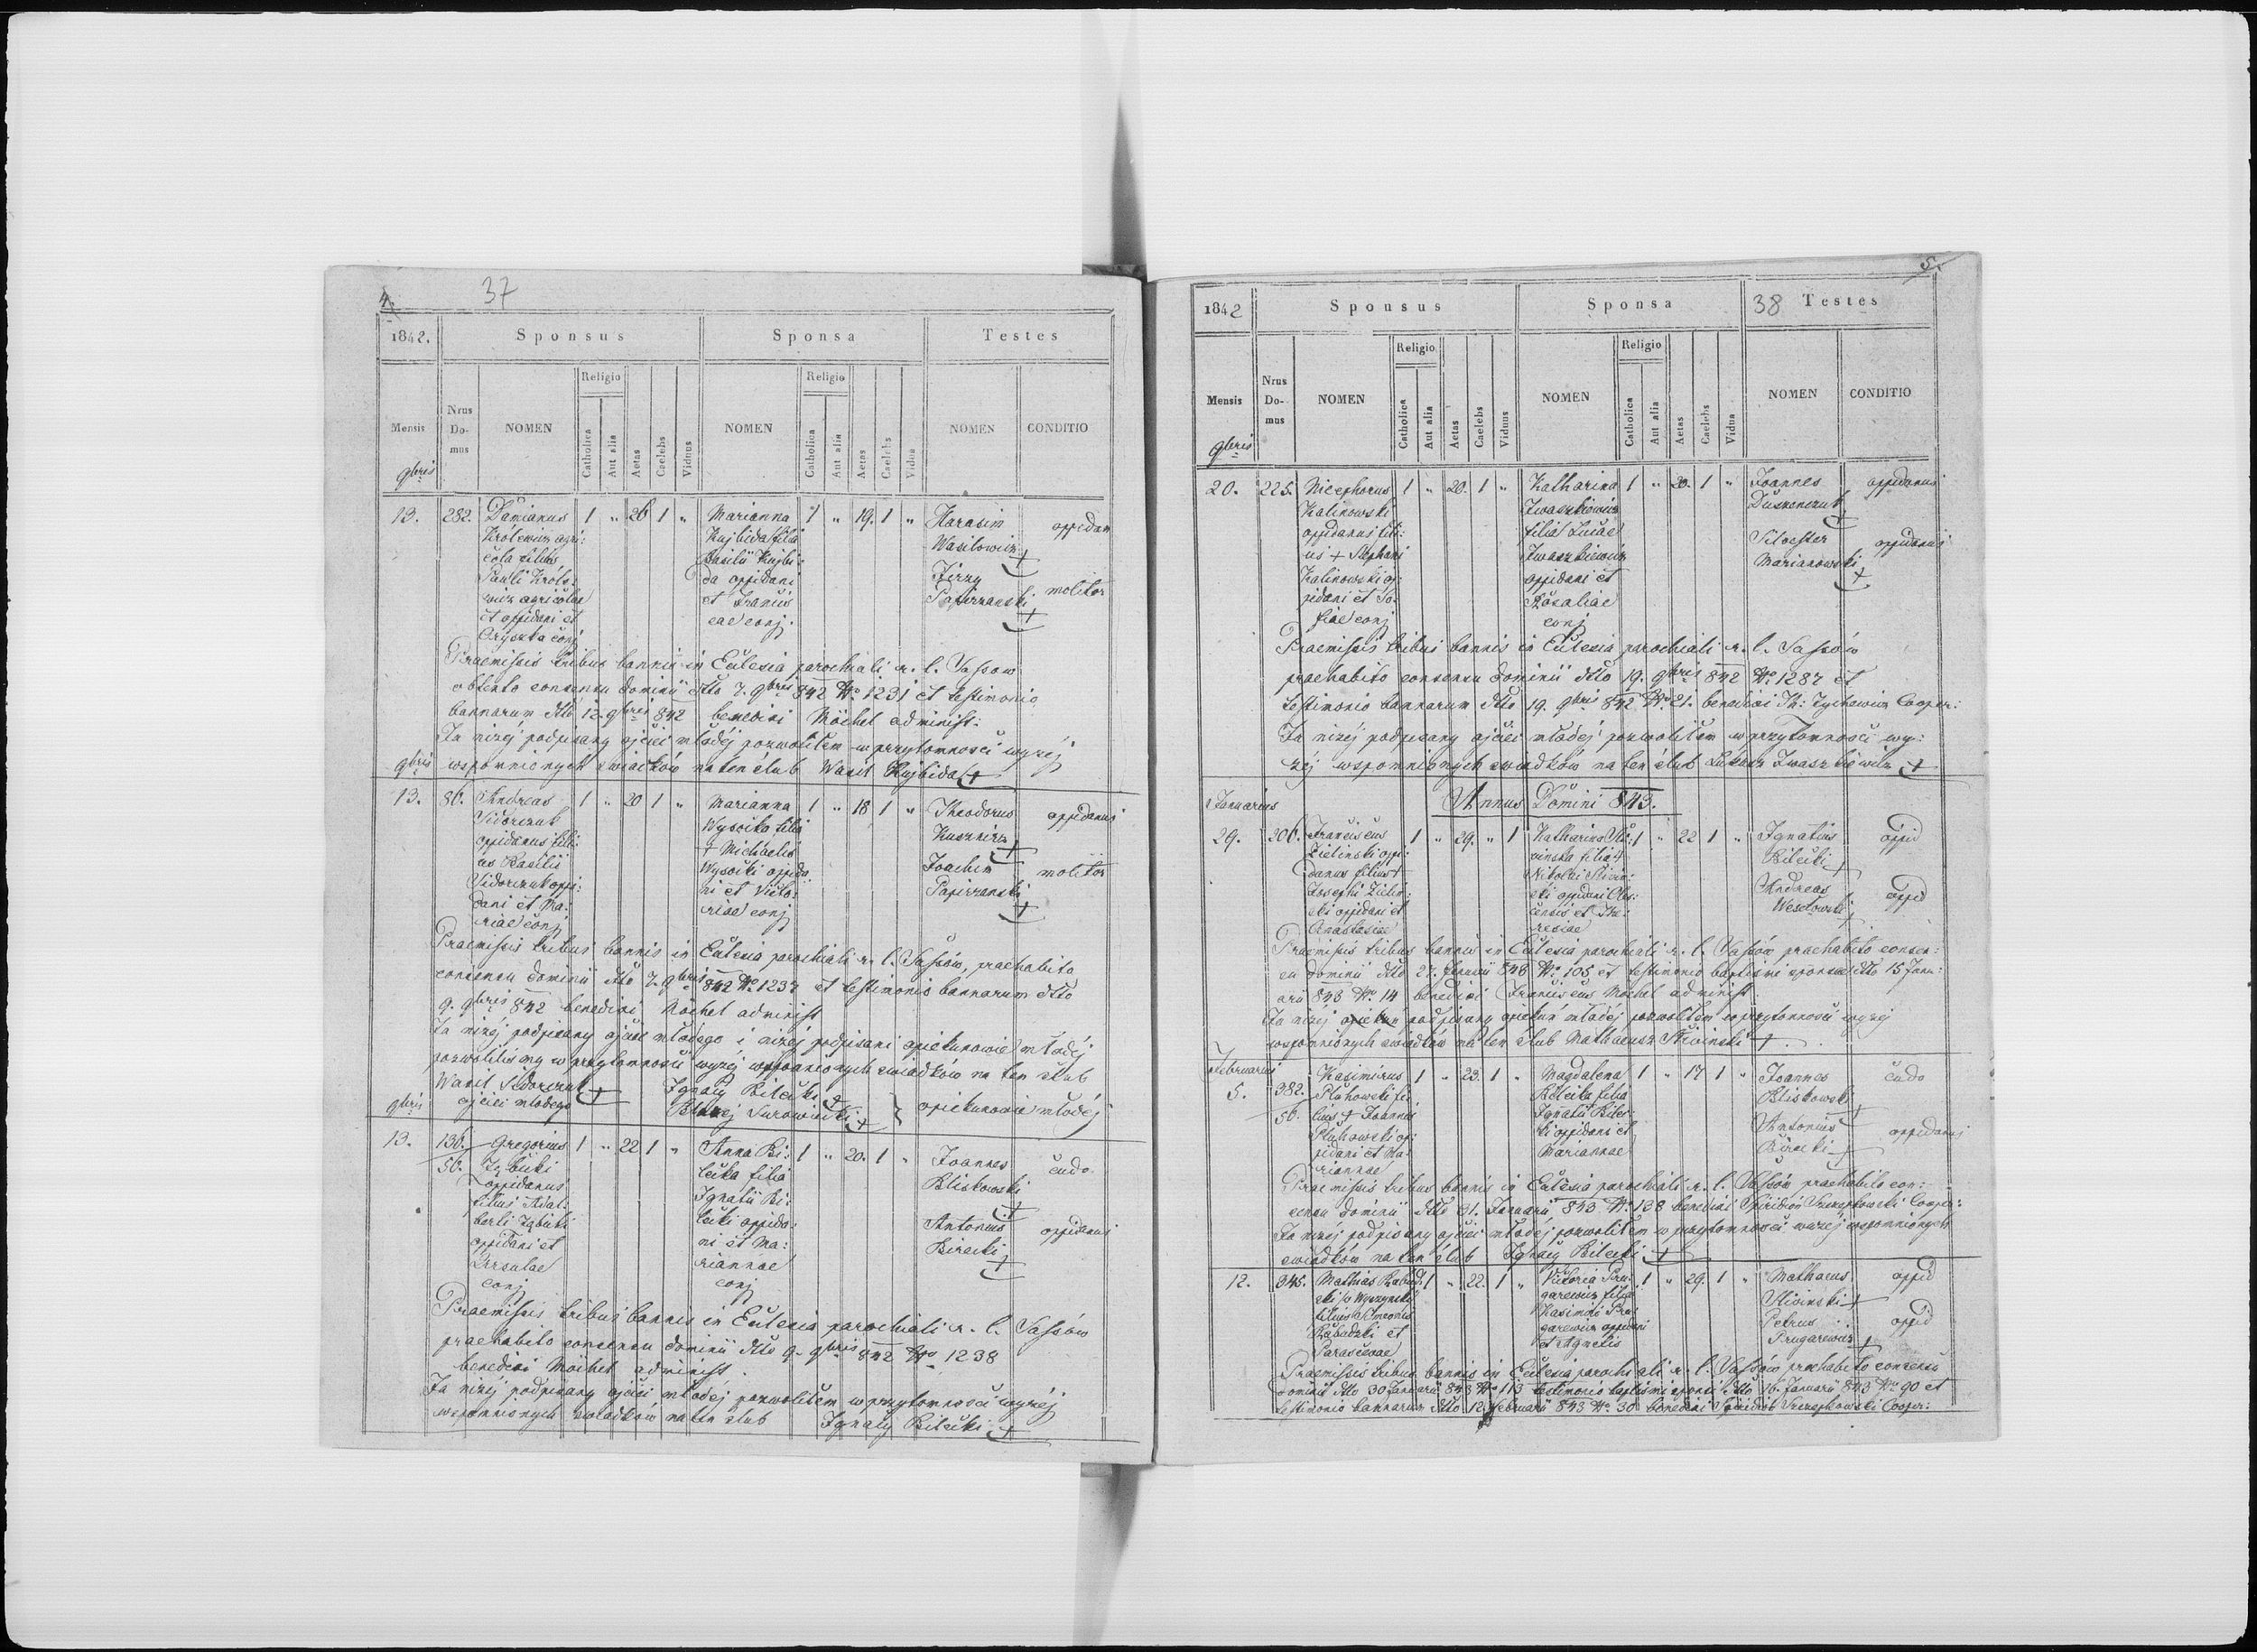 4.
37
1842.
Sponsus
Sponsa
Testes
Mensis
Nrus Do- mus
NOMEN
Religio
Catholica
Aut alia
Aetas
Caelebs
Viduus
NOMEN
Religio
Catholica
Aut alia
Aetas
Caelebs
Vidua
NOMEN
CONDITIO
9bris
13. 282.
Damianus
Królewicz agri:
cola filius
Pauli Króle:
wicz agricolae
et oppidani et
conj
1 " 26 1 "
Marianna
Kujbida filia
Basilii Kujbi:
da oppidani
et Francis
cae conj.
1 " 19. 1 "
Harasim
Wasilowicz
+
oppidan
Papirzanski
+
molitor
Praemissis tribus bannis in Ecclesia parochiali r. l. Sassow
obtento consensu dominii dtto 7. 9bris 842 No 1231 et testimonio
bannorum dtto 12. 9bris 842 benedixi Möchel administ:
Ja niżéj podpisany ojciec młodéj pozwoliłem w przytomności wyżéj
wspomnionych świadków na ten ślub Wasil Kujbida +
9bris
13. 86.
Andreas
Sidorczuk
oppidanus fili:
us Basilii
Sidorczuk oppi:
dani et Ma:
riae conj
1 " 20 1 "
Marianna
Wysocka filia
+ Michaelis
Wysocki oppida
ni et Victo:
riae conj
1 " 18 1 "
Theodorus
Kusznirz
+
oppidanus
Joachim
Papirzanski
+
molitor
Praemissis tribus bannis in Ecclesia parochiali r. l. Sassów, praehabito
consensu dominii dtto 7. 9bris 842 No 1237 et testimonio bannorum dtto
9. 9bris 842 benedixi Möchel administ
Ja niżéj podpisany ojciec młodego i niżéj podpisani opiekunowie młodéj
pozwoliliśmy w przytomności wyżéj wspomnionych świadków na ten ślub
Wasil Sidorczuk + Ignacy Bilecki +
ojciec młodego Surowiecki + } opiekunowie młodéj
9bris
13. 136.
56.
Gregorius
Zębicki
oppidanus
filius Adal:
berti Zębicki
oppidani et
Ursulae
conj
1 " 22 1 "
Anna Bi:
lecka filia
Ignatii Bi:
lecki oppida:
ni et Ma:
riannae
conj
1 " 20. 1 "
Joannes
Bliskowski
+
cudo
Antonius
Birecki
+
oppidanus
Praemissis tribus bannis in Ecclesia parochiali r. l. Sassów
praehabito consensu dominii dtto 9. 9bris 842 No 1238
benedixi Möchel administ.
Ja niżéj podpisany ojciec młodéj pozwoliłem w przytomności wyżéj
wspomnionych świadków na ten ślub Ignacy Bilecki +
5.
1842
Sponsus
Sponsa
38
Testes
Mensis
Nrus Do- mus
NOMEN
Religio
Catholica
Aut alia
Aetas
Caelebs
Viduus
NOMEN
Religio
Catholica
Aut alia
Aetas
Caelebs
Vidua
NOMEN
CONDITIO
9bris
20. 225.
Nicephorus
Kalinowski
oppidanus fili:
us + Stephani
Kalinowski op:
pidani et So:
fiae conj
1 " 20. 1 "
Katharina
Iwaszkiewicz
filia Lucae
Iwaszkiewicz
oppidani et
Rosaliae
conj
1 " 20. 1 "
Joannes
Duszenczuk
+
oppidanus
Silvester
Marianowski
+
oppidanus
Praemissis tribus bannis in Ecclesia parochiali r. l. Sassów
praehabito consensu dominii dtto 19. 9bris 842 No 1287 et
testimonio bannorum dtto 19. 9bris 842 No 21. benedixi Th: Zychowicz Cooper:
Ja niżéj podpisany ojciec młodéj pozwoliłem w przytomności wy:
żéj wspomnionych świadków na ten ślub Łukasz Iwaszkiewicz +
Januarius
Annus Domini 843.
29. 206.
Franciscus
Zielinski oppi:
danus filius +
Josephi Zielin:
ski oppidani et
Anastasiae
1 " 29. " 1
Katharina Sli:
winska filia +
Nikolai Sliwin:
ski oppidani Oles:
censis et The:
resiae
1 " 22 1 "
Ignatius
Bilecki +
oppid
Andreas
Wesołowski +
oppid
Praemissis tribus bannis in Ecclesia parochiali r. l. Sassów praehabito consen:
su dominii dtto 27. Januarii 843 No 105 et testimonio baptismi sponsae dtto 15 Janu:
arii 843 No 14 benedixi Franciscus Möchel administ
Ja niżéj podpisany opiekun młodéj pozwoliłem w przytomności wyżéj
wspomnionych świadków na ten ślub Mathaeusz Sliwinski +
Februarius
5. 382.
56.
Kasimirus
Pluhowski fi:
lius + Joannis
Pluhowski op:
pidani et Ma:
riannae
1 " 23. 1 "
Magdalena
Bilecka filia
Ignatii Bilec:
ki oppidani et
Mariannae
1 " 17 1 "
Joannes
Bliskowski
+
cudo
Antonius
Birecki +
oppidanus
Praemissis tribus bannis in Ecclesia parochiali r. l. Sassów praehabito con:
sensu dominii dtto 31. Januarii 843 No 138 benedixi Spiridion Szczepkowski Cooper:
Ja niżéj podpisany ojciec młodéj pozwoliłem w przytomności wyżéj wspomnionych
świadków na ten ślub Ignacy Bilecki +
12. 345.
Mathias Babud:
ski
filius Simeonis
Babudzki et
Parascevae
1 " 22. 1 "
Victoria Pru:
garewicz filia
Kasimiri Pru:
garewicz oppidani
et Agnetis
1 " 29. 1 "
Mathaeus
Sliwinski +
oppid
Petrus
Prugarewicz +
oppid
Praemissis tribus bannis in Ecclesia parochiali r. l. Sassów praehabito consensu
dominii dtto 30 Januarii 843 No 113 testimonio baptismi sponsi dtto 16. Januarii 843 No 90 et
testimonio bannorum dtto 12 Februarii 843 No 30 benedixi Spiridion Szczepkowski Cooper: